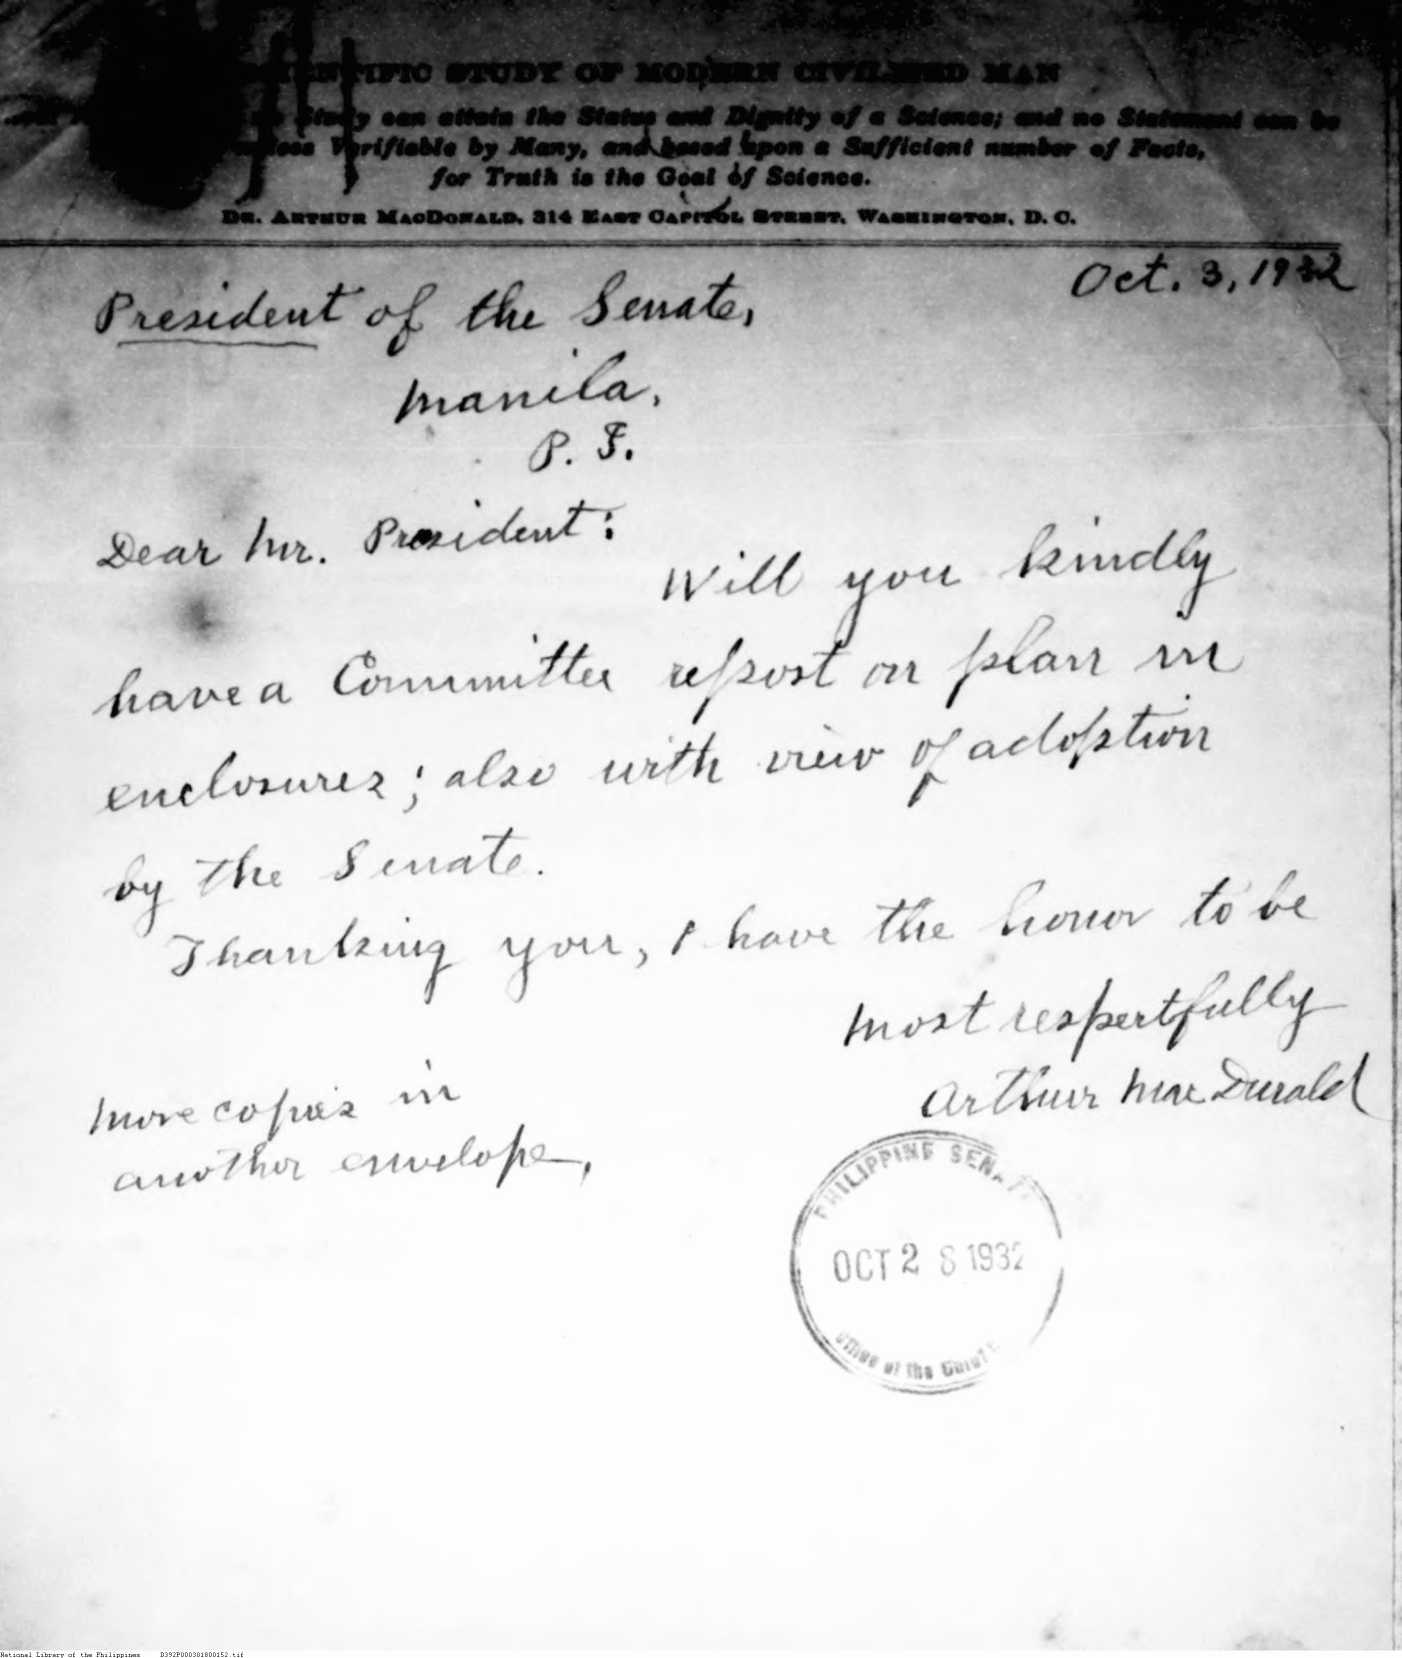 SCIENTIFIC STUDY OF MODERN CIVILIZED MAN
Study can attain the Status and Dignity of a Science; and no Statement can be
unless Verifiable by Many, and based upon a Sufficient number of Facts,
for Truth is the Goal of Science.
DR. ARTHUR MACDONALD, 314 EAST CAPITOL STREET, WASHINGTON, D. C.
Oct. 3, 1932
President of the Senate,
Manila,
P. I.
Dear Mr. President:
Will you kindly
have a Committee report on plan in
enclosures; also with view of adoption
by the Senate.
Thanking you, I have the honor to be
most respectfully
Arthur MacDonald
More copies in
another envelope.
PHILIPPINE SENATE
OCT 28 1932
Office of the
National Library of the Philippines D392P000301800152.tif